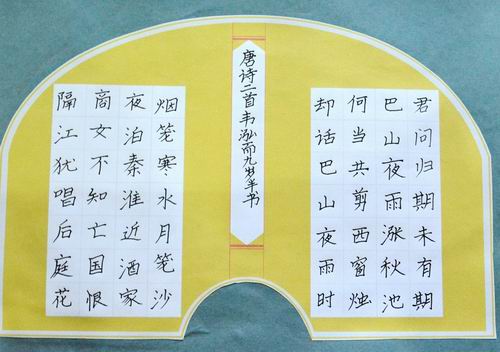 君问归期未有期
巴山夜雨涨秋池
何当共剪西窗烛
却话巴山夜雨时
唐诗二首韦泓而九岁半书
烟笼寒水月笼沙
夜泊秦淮近酒家
商女不知亡国恨
隔江犹唱后庭花